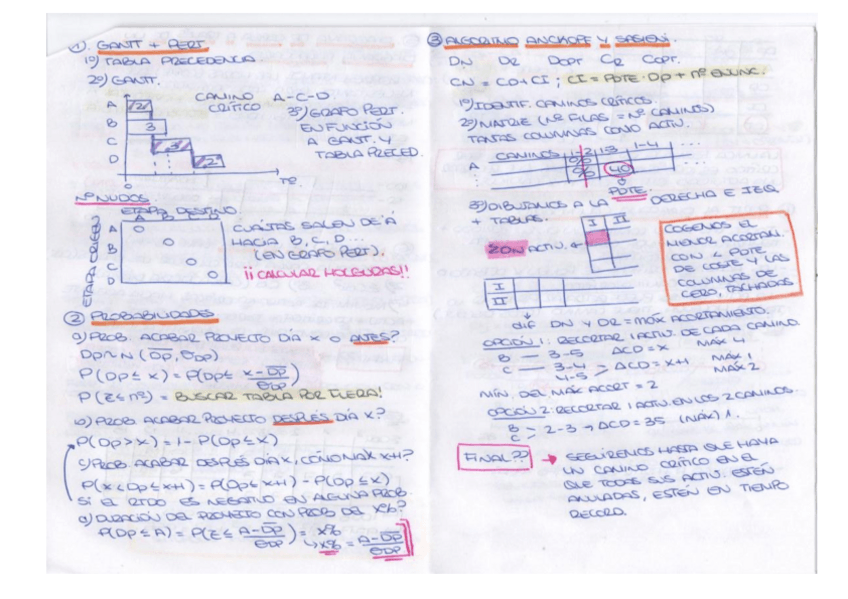 ①. GANTT + PERT.
1º) TABLA PRECEDENCIA
2º) GANTT.
A 2
B 3
C 3
D 2
0
CAMINO A-C-D
CRÍTICO
3º) GRAFO PERT.
EN FUNCIÓN
A GANTT. Y
TABLA PRECED.
Nº NUDOS
ETAPA DESTINO
ETAPA ORIGEN
A B C D
A 0
B 0
C 0
D 0
CUÁNTAS SALEN DE A
HACIA B, C, D...
(EN GRAFO PERT).
¡¡CALCULAR HOLGURAS!!
② PROBABILIDADES
a) PROB. ACABAR PROYECTO DÍA X O ANTES?
Dp ~ N (Dp, σDp)
P(Dp ≤ x) = P(Dp ≤ x-Dp/σDp)
P(z ≤ nº) = BUSCAR TABLA POR FUERA!
b) PROB ACABAR PROYECTO DESPUÉS DÍA X?
P(Dp > x) = 1 - P(Dp ≤ x)
c) PROB ACABAR DESPUÉS DÍA X, COMO MAX X+1?
P(x ≤ Dp ≤ x+1) = P(Dp ≤ x+1) - P(Dp ≤ x)
SI EL RTDO ES NEGATIVO EN ALGUNA PROB.
d) DURACIÓN DEL PROYECTO CON PROB DEL X%?
P(Dp ≤ A) = P(z ≤ A-Dp/σDp) = X%
↳ X% = A-Dp/σDp
③ ALGORITMO ANCKOFF Y SASIENI.
DN DR DOPT CR COPT.
CN = CD + CI ; CI = PDTE · Dp + nº ENUNC.
1º) IDENTIF. CAMINOS CRÍTICOS.
2º) MATRIZ (Nº FILAS = Nº CAMINOS)
TANTAS COLUMNAS COMO ACTIV.
CAMINOS 1-2 1-3 1-4 ...
A 40
PDTE.
3º) DIBUJAMOS A LA DERECHA E IZQ.
+ TABLAS.
I II
2ON ACTIV. ←
COGEMOS EL
MENOR ACORTAM.
CON < PDTE
DE COSTE Y LAS
COLUMNAS DE
CERO, TACHADAS
I
II
dif DN Y DR = MÁX ACORTAMIENTO.
OPCIÓN 1: RECORTAR 1 ACTIV. DE CADA CAMINO
B — 3-5 ΔCD = X MÁX 4
C — 3-4 → ΔCD = X+1 MÁX 1
4-5 MÁX 2
MÍN. DEL MÁX ACORT = 2
OPCIÓN 2: RECORTAR 1 ACTIV. EN LOS 2 CAMINOS.
B
C > 2-3 → ΔCD = 35 (MÁX) 1.
FINAL?? → SEGUIREMOS HASTA QUE HAYA
UN CAMINO CRÍTICO EN EL
QUE TODAS SUS ACTIV. ESTÉN
ANULADAS, ESTÉN EN TIEMPO
RECORD.